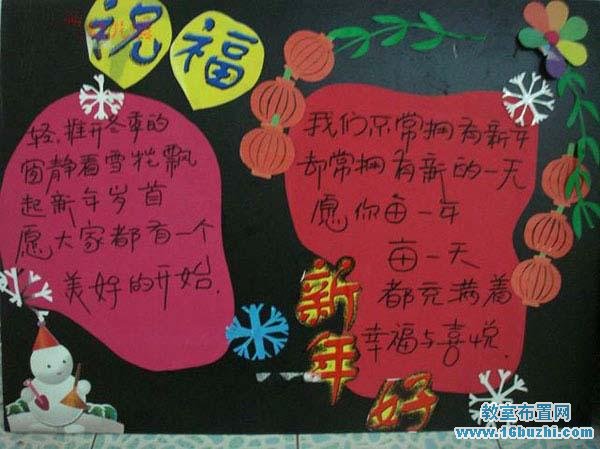 祝福
轻.推开冬季的
窗静看雪花飘
起新年岁首
愿大家都有一个
美好的开始.
我们不常拥有新年
却常拥有新的一天
愿你每一年
每一天
都充满着
幸福与喜悦.
新年好
教室布置网
www.16buzhi.com